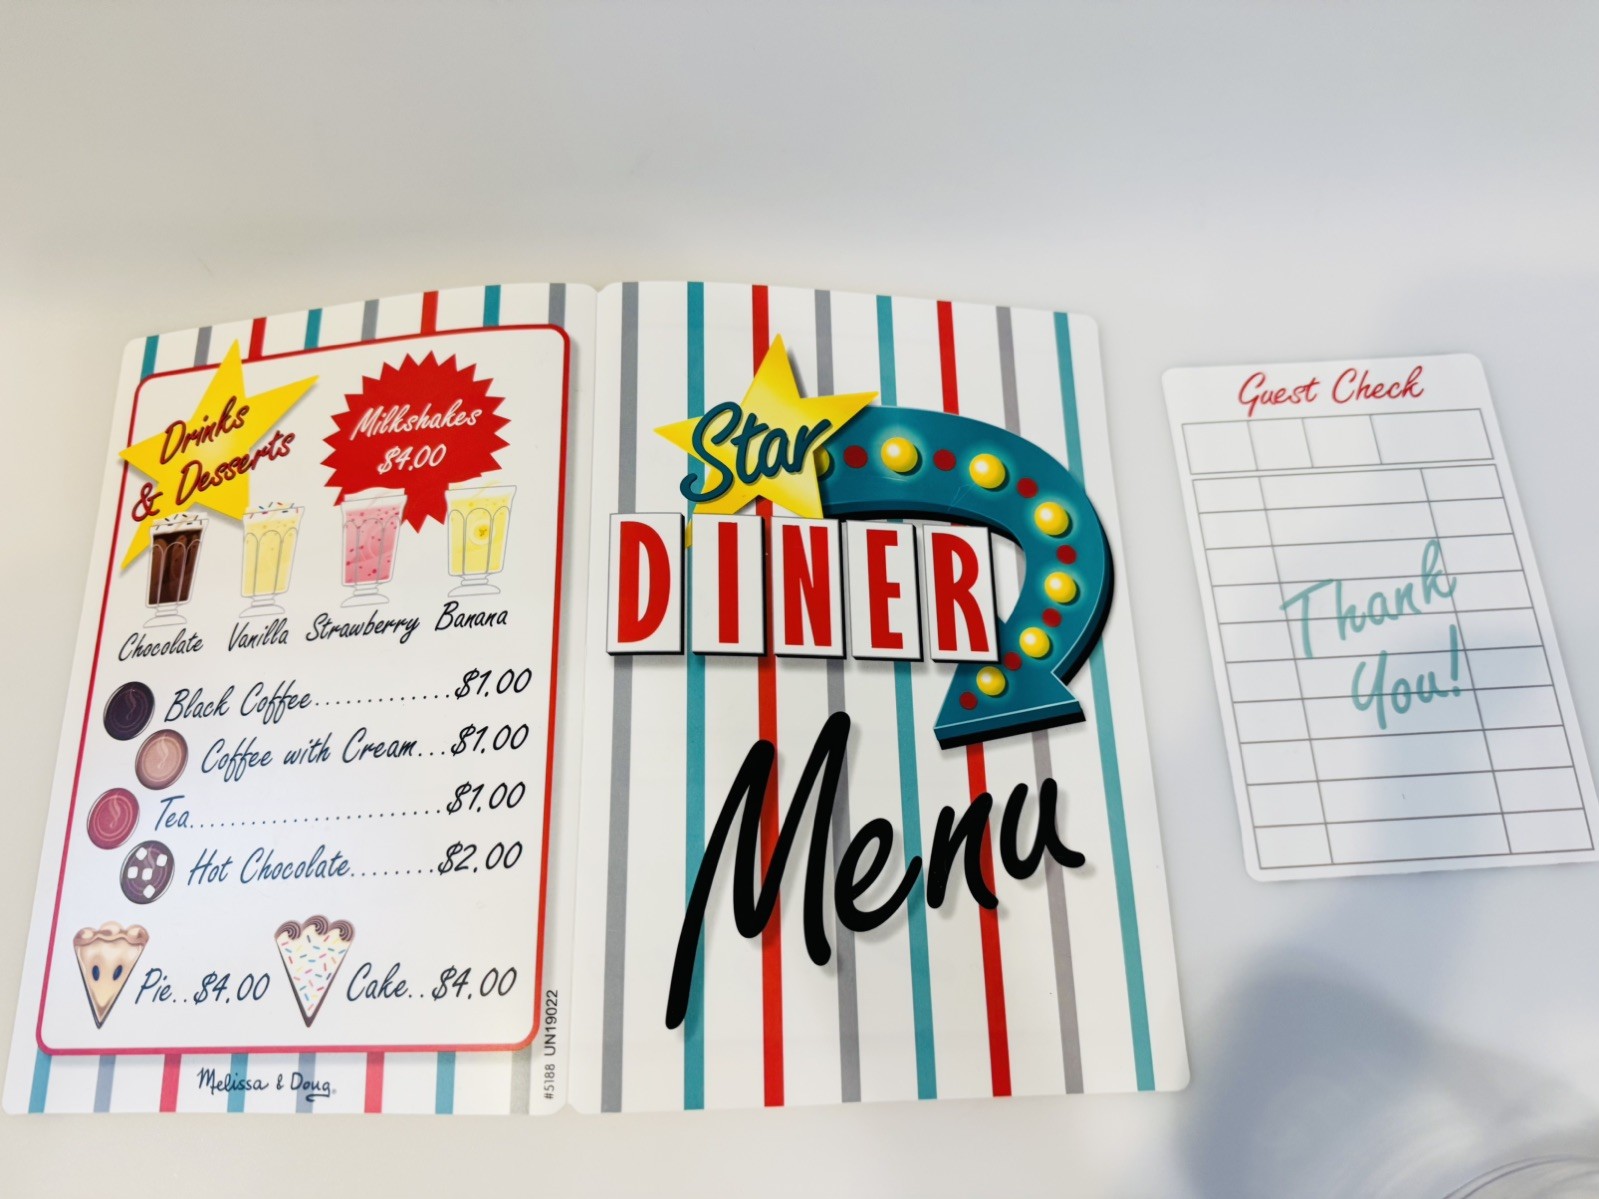 Drinks
& Desserts
Milkshakes
$4.00
Chocolate Vanilla Strawberry Banana
Black Coffee............$1.00
Coffee with Cream...$1.00
Tea......................$1.00
Hot Chocolate........$2.00
Pie..$4.00 Cake..$4.00
Melissa & Doug®
#5188 UN19022
Star
DINER
Menu
Guest Check
Thank
You!